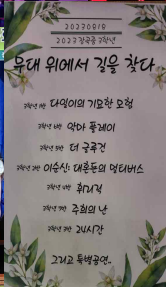 20230818
2023 장곡중 3학년
무대 위에서 길을 찾다
3학년 1반 다잉이의 기묘한 모험
3학년 2반 악마 플레이
3학년 3반 더 글루건
3학년 4반 이순신: 대혼돈의 멀티버스
3학년 5반 휘리릭
3학년 6반 주희의 난
3학년 7반 24시간
그리고 특별공연..